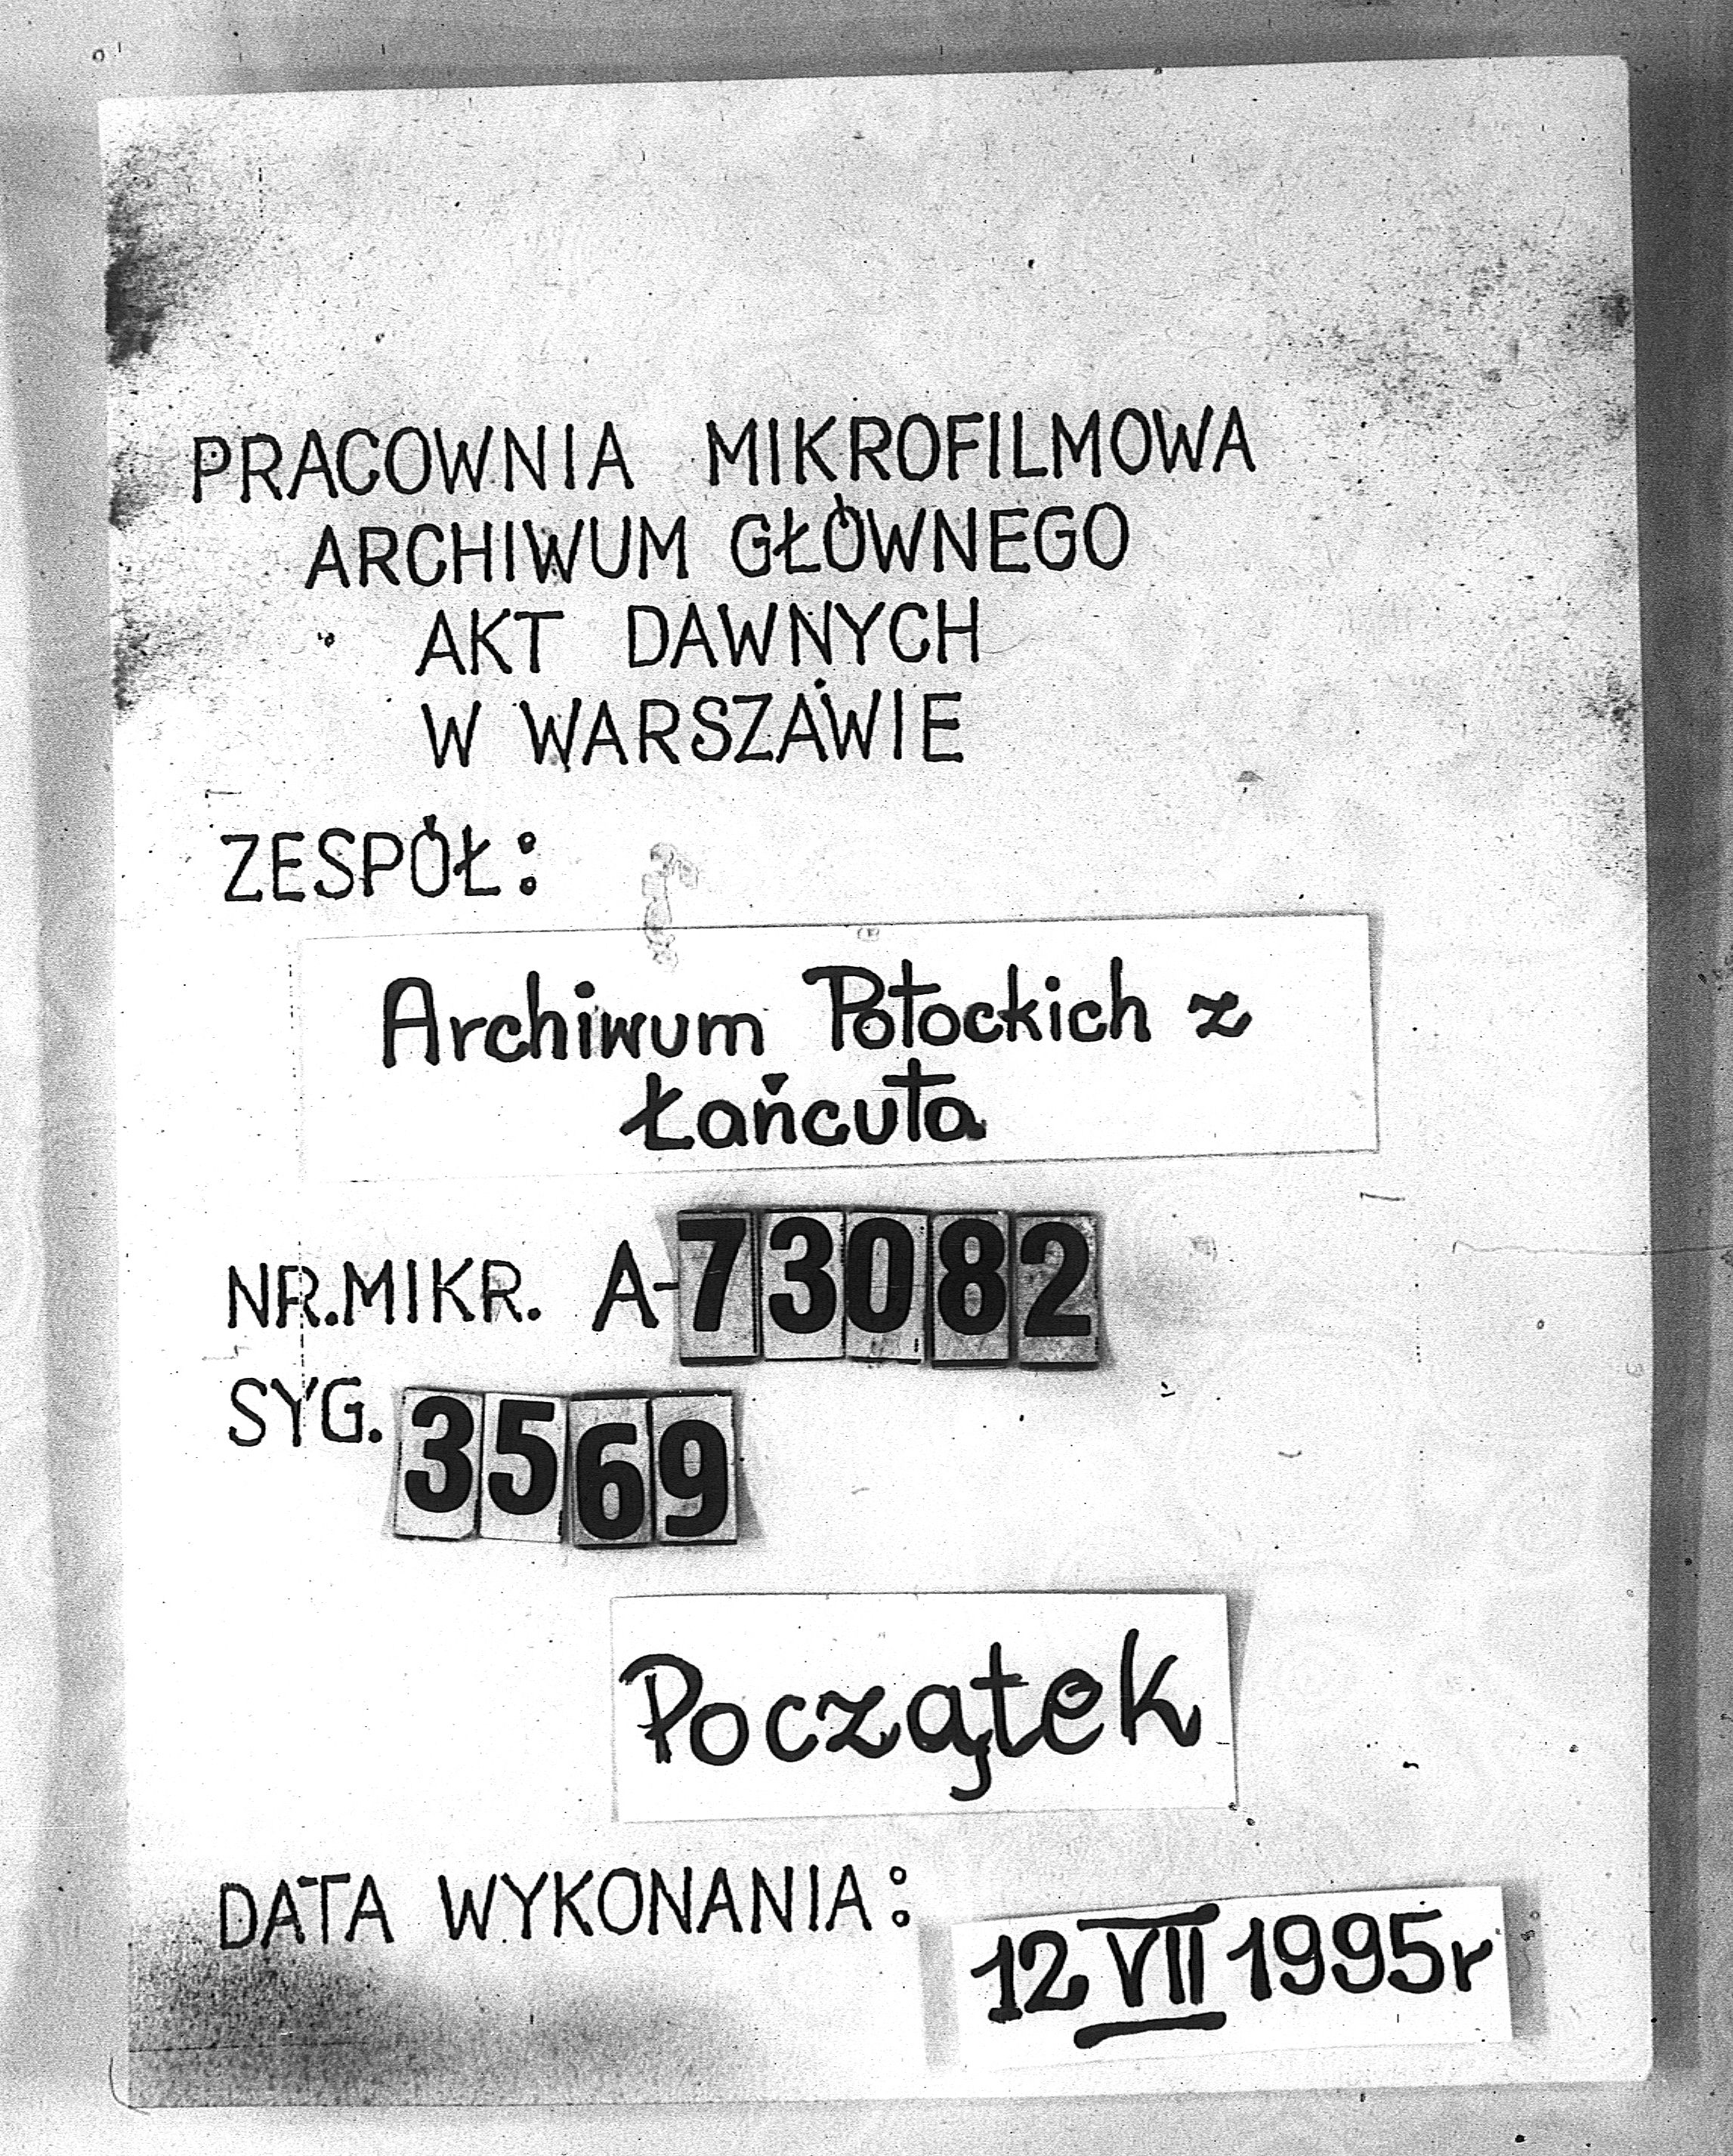 PRACOWNIA MIKROFILMOWA
ARCHIWUM GŁÓWNEGO
AKT DAWNYCH
W WARSZAWIE
ZESPÓŁ:
Archiwum Potockich z
Łańcuta
NR.MIKR. A-73082
SYG. 3569
Początek
DATA WYKONANIA: 12 VII 1995r